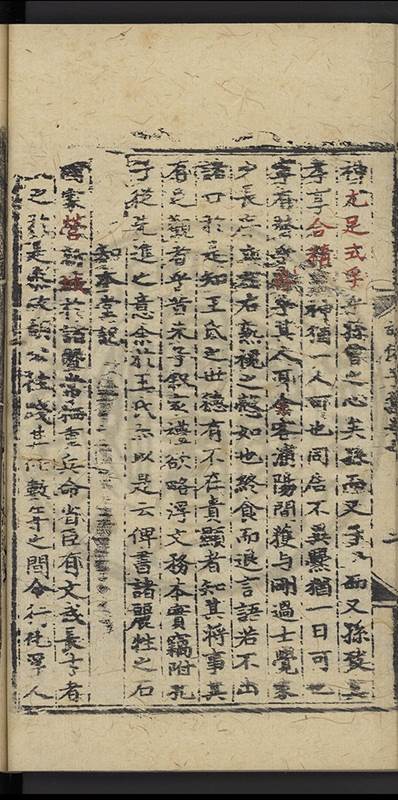 神尤足式孚乎孫曾之心矣孫而又子子而又孫發其
孝享合精神猶一人可也同居不異爨猶一日可也
寧有替乎嗚乎其人耳余客蘭陽間獲与剛過士覺家
少長立左右熟視之懃如也終食而退言語若不出
諸口於是知王氏之世德有不在貴顯者知其將事其
有足觀者乎昔朱子叙家禮欲略浮文務本實竊附孔
子從先進之意余於王氏亦以是云俾書諸麗牲之石
知本堂記
國家營新城於諸暨常極重兵命省臣有文武長才者
之於是參政胡公往踐其任數年之間令行徒孚人